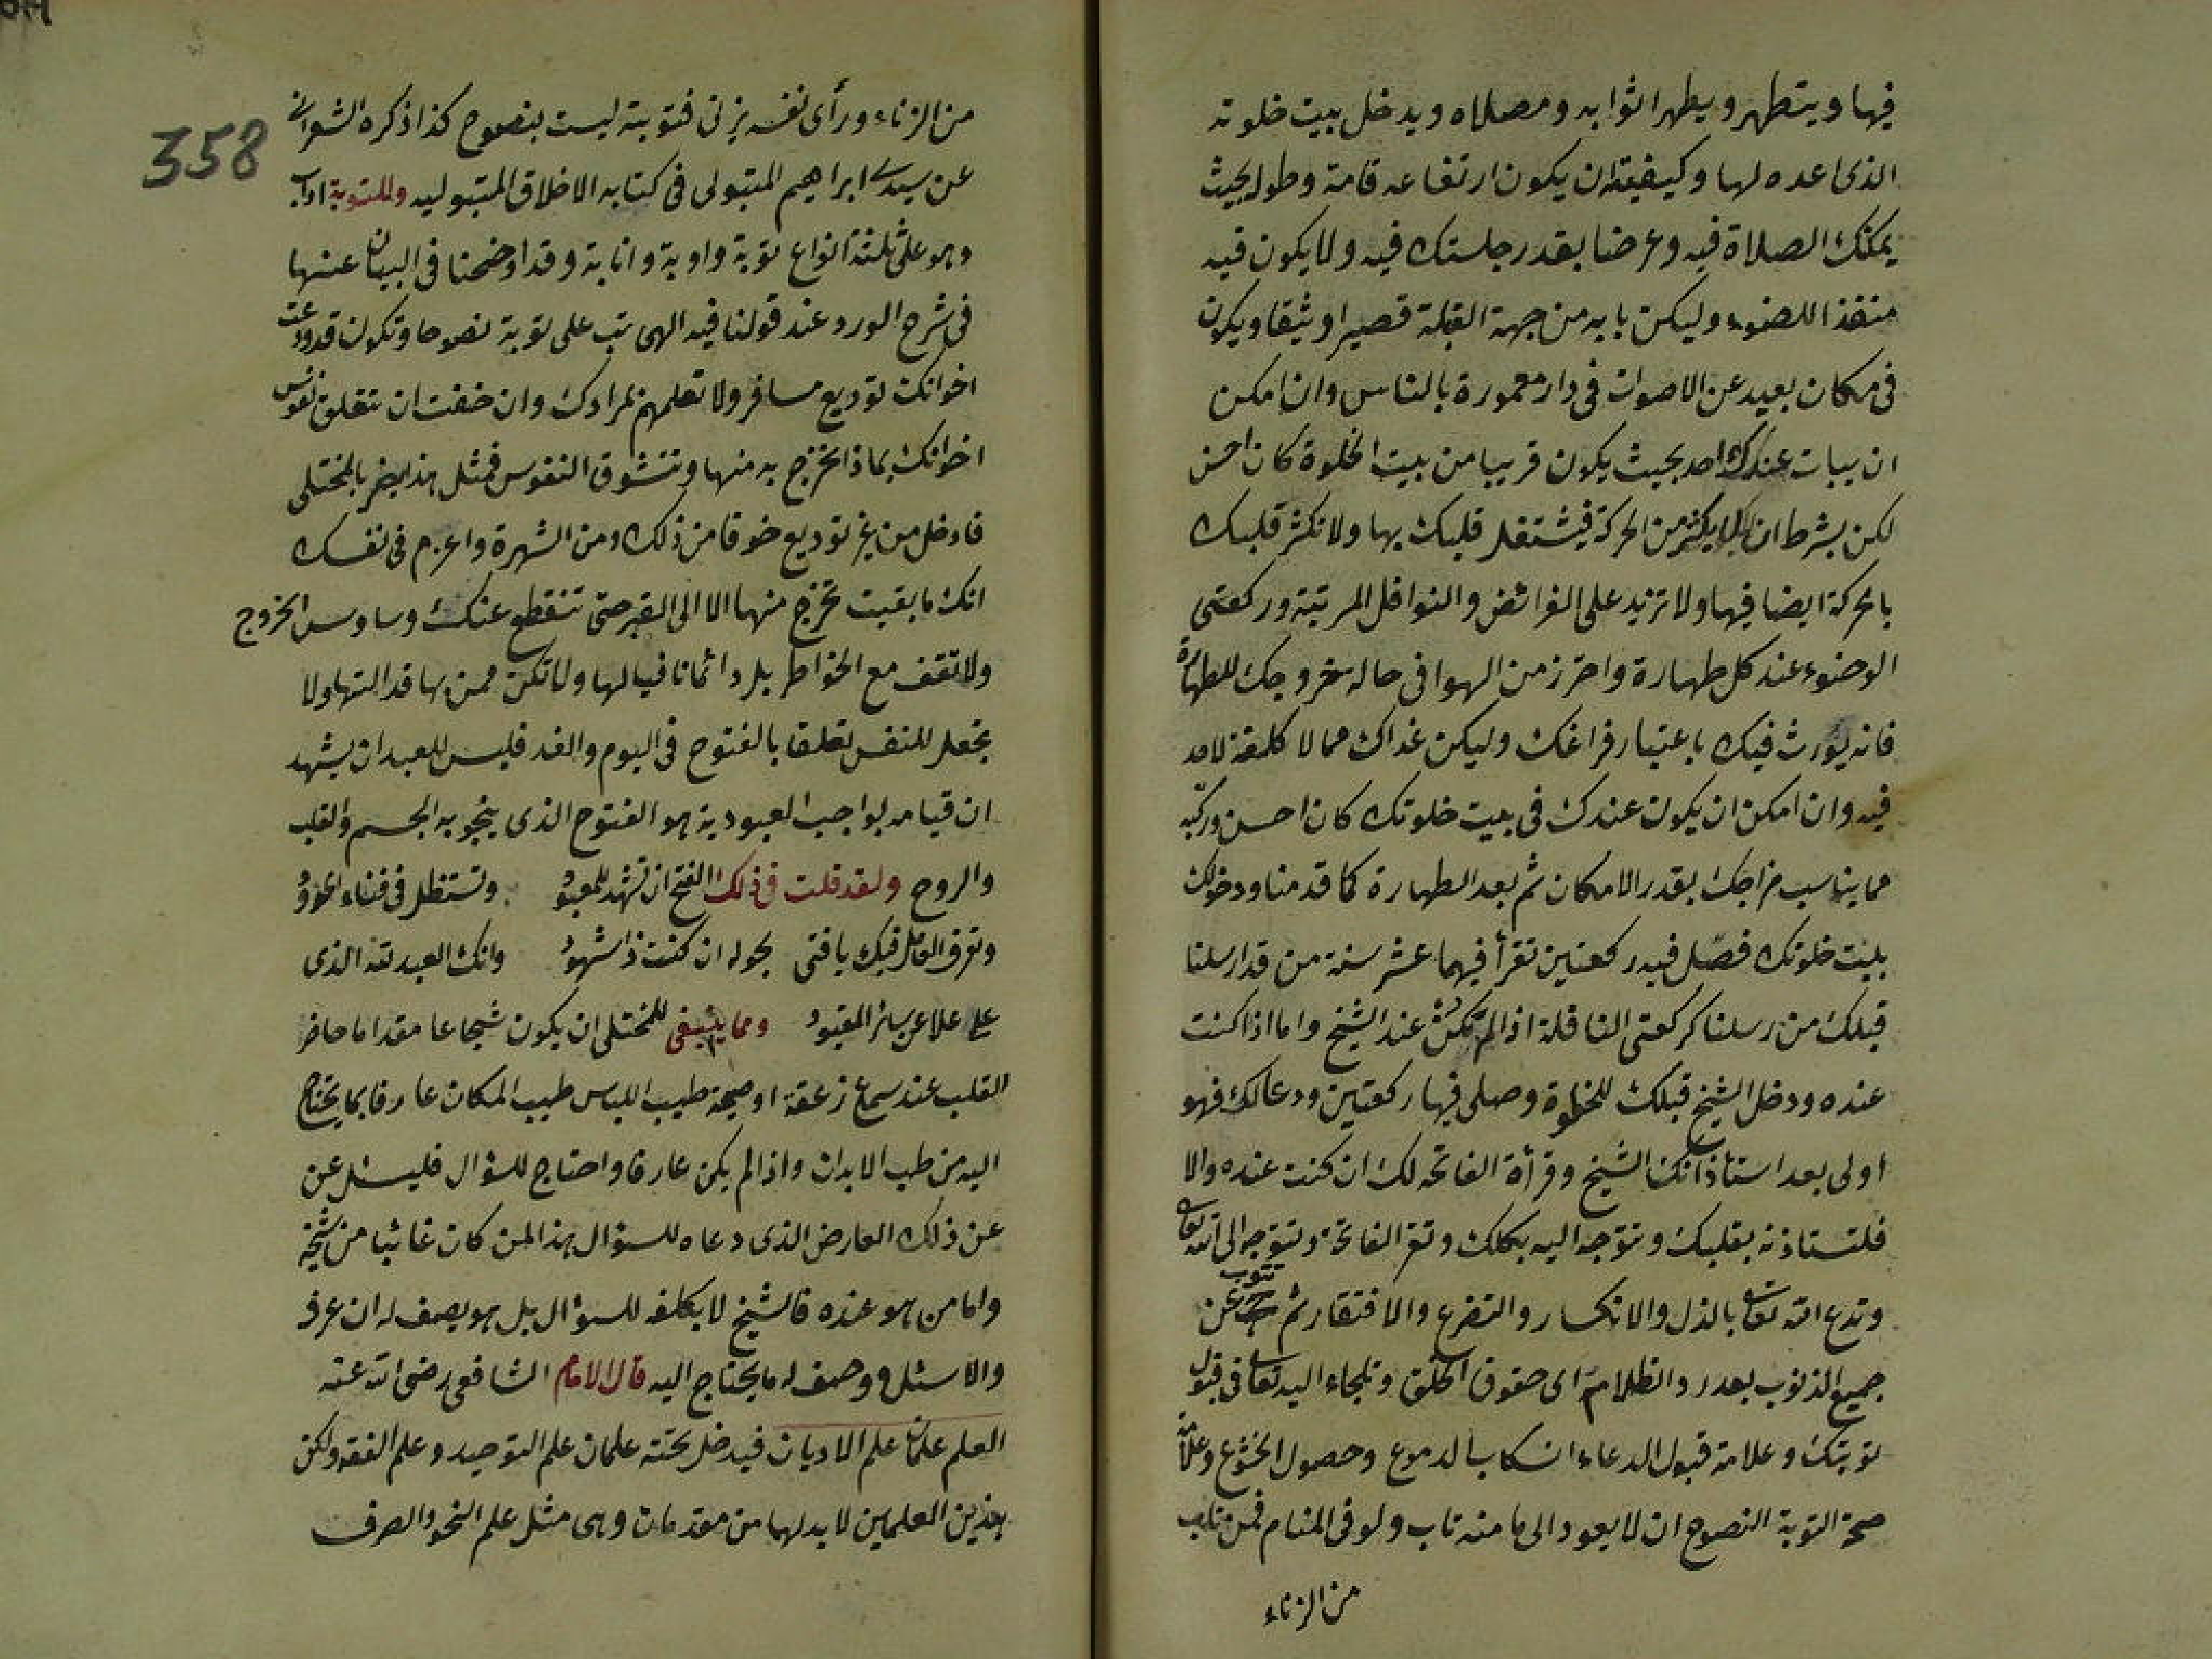 فيها ويتطهر ويطهر اثوابه ومصلاه ويدخل بيت خلوته
الذى اعده لها وكيفيته ان يكون ارتفاعه قامة وطوله بحيث
يمكنك الصلاة فيه وعرضا بقدر جلستك فيه ولا يكون فيه
منفذا للضوء وليكن بابه من جهة القبلة قصيرا وثيقا ويكون
فى مكان بعيد عن الاصوات فى دار معمورة بالناس وان امكن
ان يبات عندك احد بحيث يكون قريبا من بيت الخلوة كان احسن
لكن بشرط ان لا يكثر من الحركة فيشتغل قلبك بها ولا تكثر قلبك
بالحركة ايضا فيها ولا تزيد على الفرائض والنوافل المرتبة وركعتى
الوضوء عند كل طهارة واحترز من الهوا فى حالة خروجك للطهارة
فانه يورث فيك باعتبار فراغك وليكن غداك مما لا كلفة لاحد
فيه وان امكن ان يكون عندك فى بيت خلوتك كان احسن وركبه
مما يناسب مزاجك بقدر الامكان ثم بعد الطهارة كما قدمنا ودخولك
بليت خلوتك فصل فيه ركعتين تقرأ فيهما عشر سنة من قد ارسلنا
قبلك من رسلنا كركعتى النافلة اذا لم تكن عند الشيخ واما اذا كنت
عنده ودخل الشيخ قبلك للخلوة وصلى فيها ركعتين ودعا لك فهو
اولى بعد استأذانك الشيخ وقرأة الفاتحه لك ان كنت عنده والا
فلتستاذنه بقلبك وتتوجه اليه بكلك وتقر الفاتحة وتتوجه الى الله تعالى
وتدع الله تعالى بالذل والانكسار والتضرع والافتقار ثم تتوب عن
جميع الذنوب بعد رد الظلامة اى حقوق الخلق وتلجاء اليه تعالى فى قبول
توبتك وعلامة قبول الدعاء انسكاب الدموع وحصول الخشوع وعلامة
صحة التوبة النصوح ان لا يعود الى ما منه تاب ولو فى المنام فمن تاب
من الزناء
358
من الزناء ورأى نفسه يزنى فتوبته ليست بنصوح كذا ذكره الشعرانى
عن سيدى ابراهيم المتبولى فى كتابه الاخلاق المتبوليه وللتوبة اداب
وهو على ثلثة انواع توبة واوبة وانابة وقد اوضحنا فى البيان عنها
فى شرح الورد عند قولنا فيه الهى تب على توبة نصوحا وتكون قد ودعت
اخوانك توديع مسافر ولا تعلمهم بمرادك وان خفت ان تتعلق نفوس
اخوانك بماذا تخرج به منها وتتشوق النفوس فمثل هذا يضر بالمختلى
فادخل من غير توديع خوفا من ذلك ومن الشهرة واعزم فى نفسك
انك ما بقيت تخرج منها الا الى القبر حتى تنقطع عنك وساوس الخروج
ولا تقف مع الخواطر بل دائما نافيا لها ولا تكن ممن بها قد التها ولا
تجعل للنفس تعلقا بالفتوح فى اليوم والغد فليس للعبد ان يشهد
ان قيامه بواجب العبودية هو الفتوح الذى ينجو به الجسم والقلب
والروح ولقد قلت فى ذلك الفتح ان تشهد للمعبود وتستظل فى فناء الجود
وتعرف الفاعل فيك يا فتى بحوله ان كنت ذا شهود وانك العبد لله الذى
على علا عن سائر القيود ومما ينبغى للمختلى ان يكون شجاعا مقداما حاضر
القلب عند سماع زعقة او صيحة طيب اللباس طيب المكان عارفا بما يحتاج
اليه من طب الابدان واذا لم يكن عارفا واحتاج للسؤال فليسئل عن
عن ذلك العارض الذى دعاه للسؤال هذا لمن كان غائبا من شيخه
واما من هو عنده فالشيخ لا يكلفه للسؤال بل هو يصف له ان عرف
والا سئل ووصف له ما يحتاج اليه قال الامام الشافعى رضى الله عنه
العلم علمان علم الاديان فيدخل تحته علمان علم التوحيد وعلم الفقه ولكن
هذين العلمين لا بد لهما من مقدمات وهى مثل علم النحو والصرف